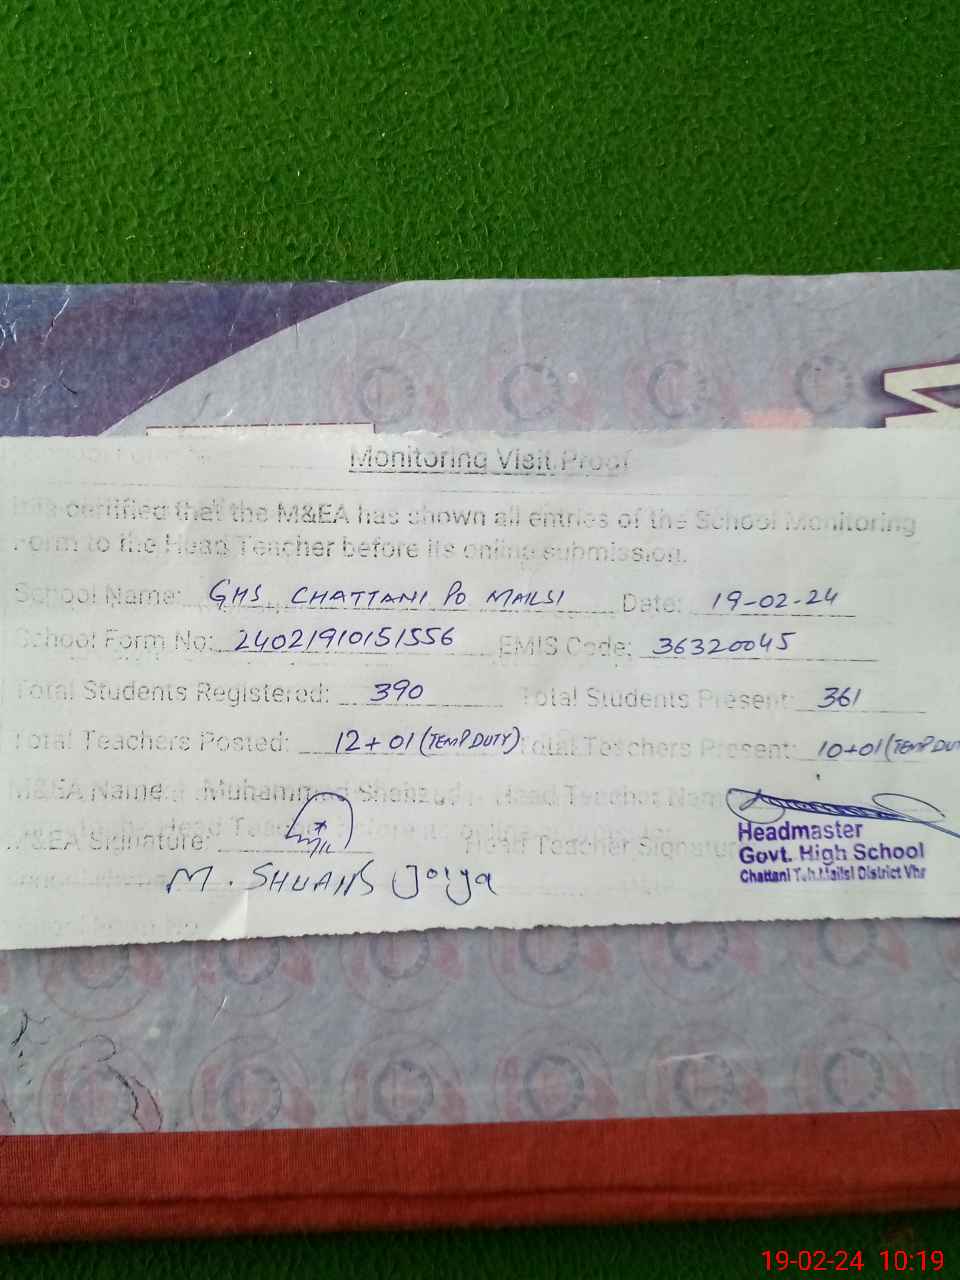 Monitoring Visit Proof
It is certified that the M&EA has shown all entries of the School Monitoring
Form to the Head Teacher before its online submission.
School Name: GHS CHATTANI PO MAILSI Date: 19-02-24
School Form No: 24021910151556 EMIS Code: 36320045
Total Students Registered: 390 Total Students Present: 361
Total Teachers Posted: 12+01 (TEMP DUTY) Total Teachers Present: 10+01 (TEMP DU
M&EA Name: Muhammad Shahzad Head Teacher Name
M&EA Signature: Head Teacher Signature
Headmaster
Govt. High School
Chattani Teh. Mailsi District Vhr
M. Joiya
19-02-24 10:19